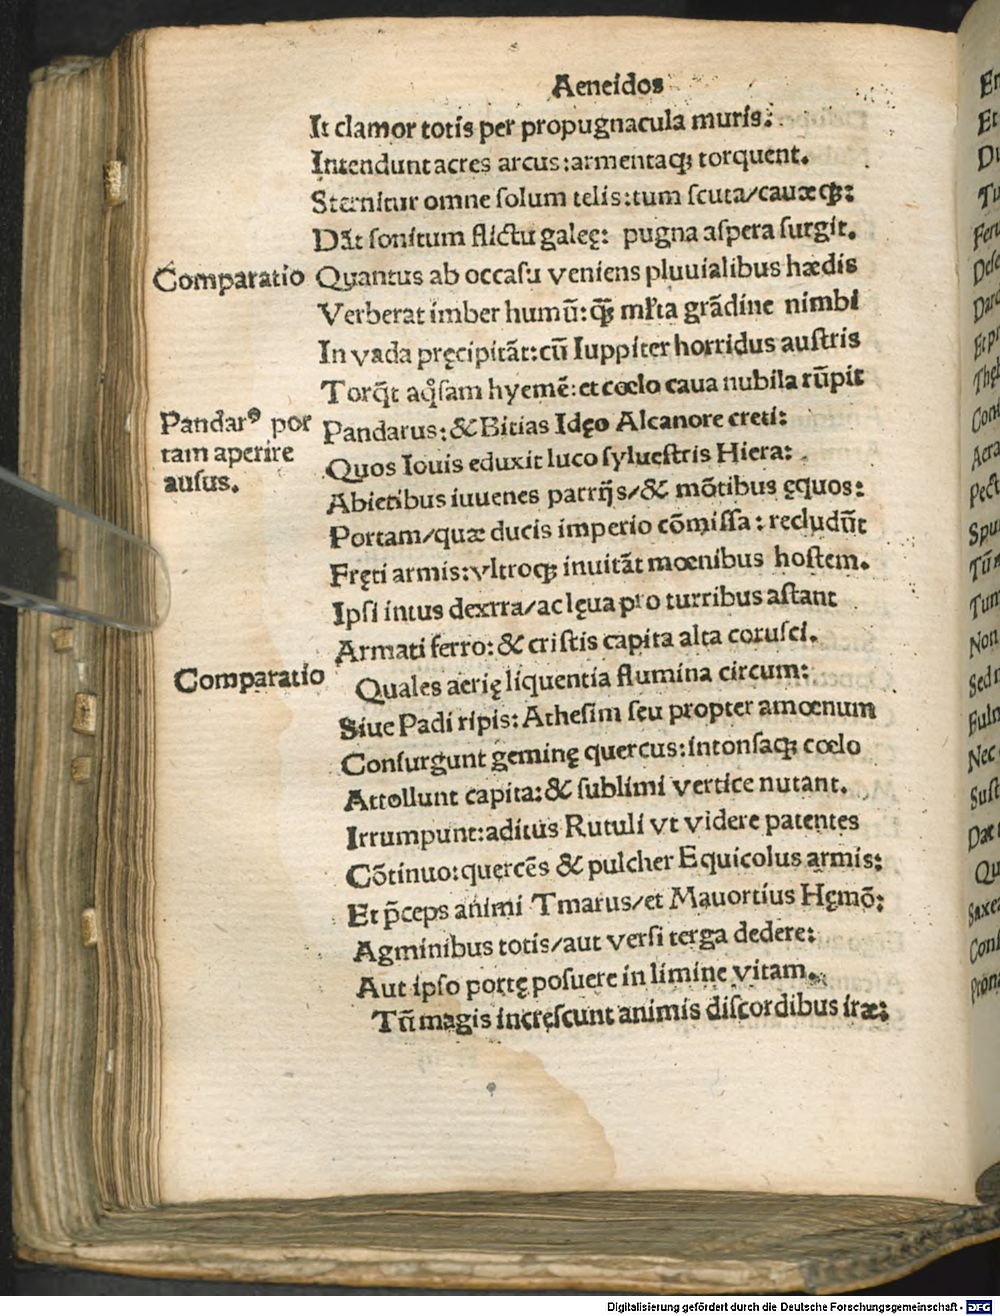 Aeneidos
It clamor totis per propugnacula muris:
Intendunt acres arcus:armentaqꝫ torquent.
Sternitur omne ſolum telis:tum ſcuta/cauæqꝫ:
Dāt ſonitum flictu galeę: pugna aſpera ſurgit.
Comparatio
Quantus ab occaſu veniens pluuialibus hædis
Verberat imber humū:qꝫ̄ mł̓ta grādine nimbi
In vada pręcipitāt:cū Iuppiter horridus auſtris
Torq̄t aq̊ſam hyemē:et cœlo caua nubila rūpit
Pandarꝰ por
tam aperire
auſus.
Pandarus:&Bitias Idęo Alcanore creti:
Quos Iouis eduxit luco ſylueſtris Hiera:
Abietibus iuuenes patrijs/& mōtibus ęquos:
Portam/quæ ducis imperio cōmiſſa:recludūt
Fręti armis:vltroqꝫ inuitāt mœnibus hoſtem.
Ipſi intus dextra/ac lęua pro turribus aſtant
Armati ferro:& criſtis capita alta coruſci.
Comparatio
Quales aerię liquentia flumina circum:
Siue Padi ripis:Atheſim ſeu propter amœnum
Conſurgunt geminę quercus:intonſaqꝫ cœlo
Attollunt capita:& ſublimi vertice nutant.
Irrumpunt:aditus Rutuli vt videre patentes
Cōtinuo:quercēs & pulcher Equicolus armis:
Et p̄ceps animi Tmarus/et Mauortius Hęmō:
Agminibus totis/aut verſi terga dedere:
Aut ipſo portę poſuere in limine vitam.
Tū magis increſcunt animis diſcordibus iræ:
Et
Du
Tu
Pect
Non
Nec
Qu
Digitalisierung gefördert durch die Deutsche Forschungsgemeinschaft - DFG